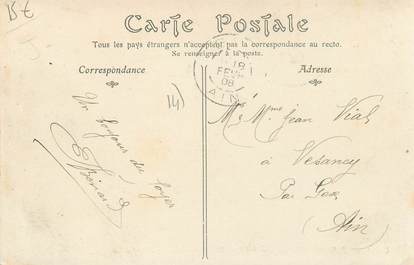 15€
Carte Postale
Tous les pays étrangers n'acceptent pas la correspondance au recto.
Se renseigner à la poste.
Correspondance
Adresse
18
FEVR
08
AIN
Un bonjour du Foyer
Mr & Mme Jean Vial
à Vesancy
Par Gex
(Ain)